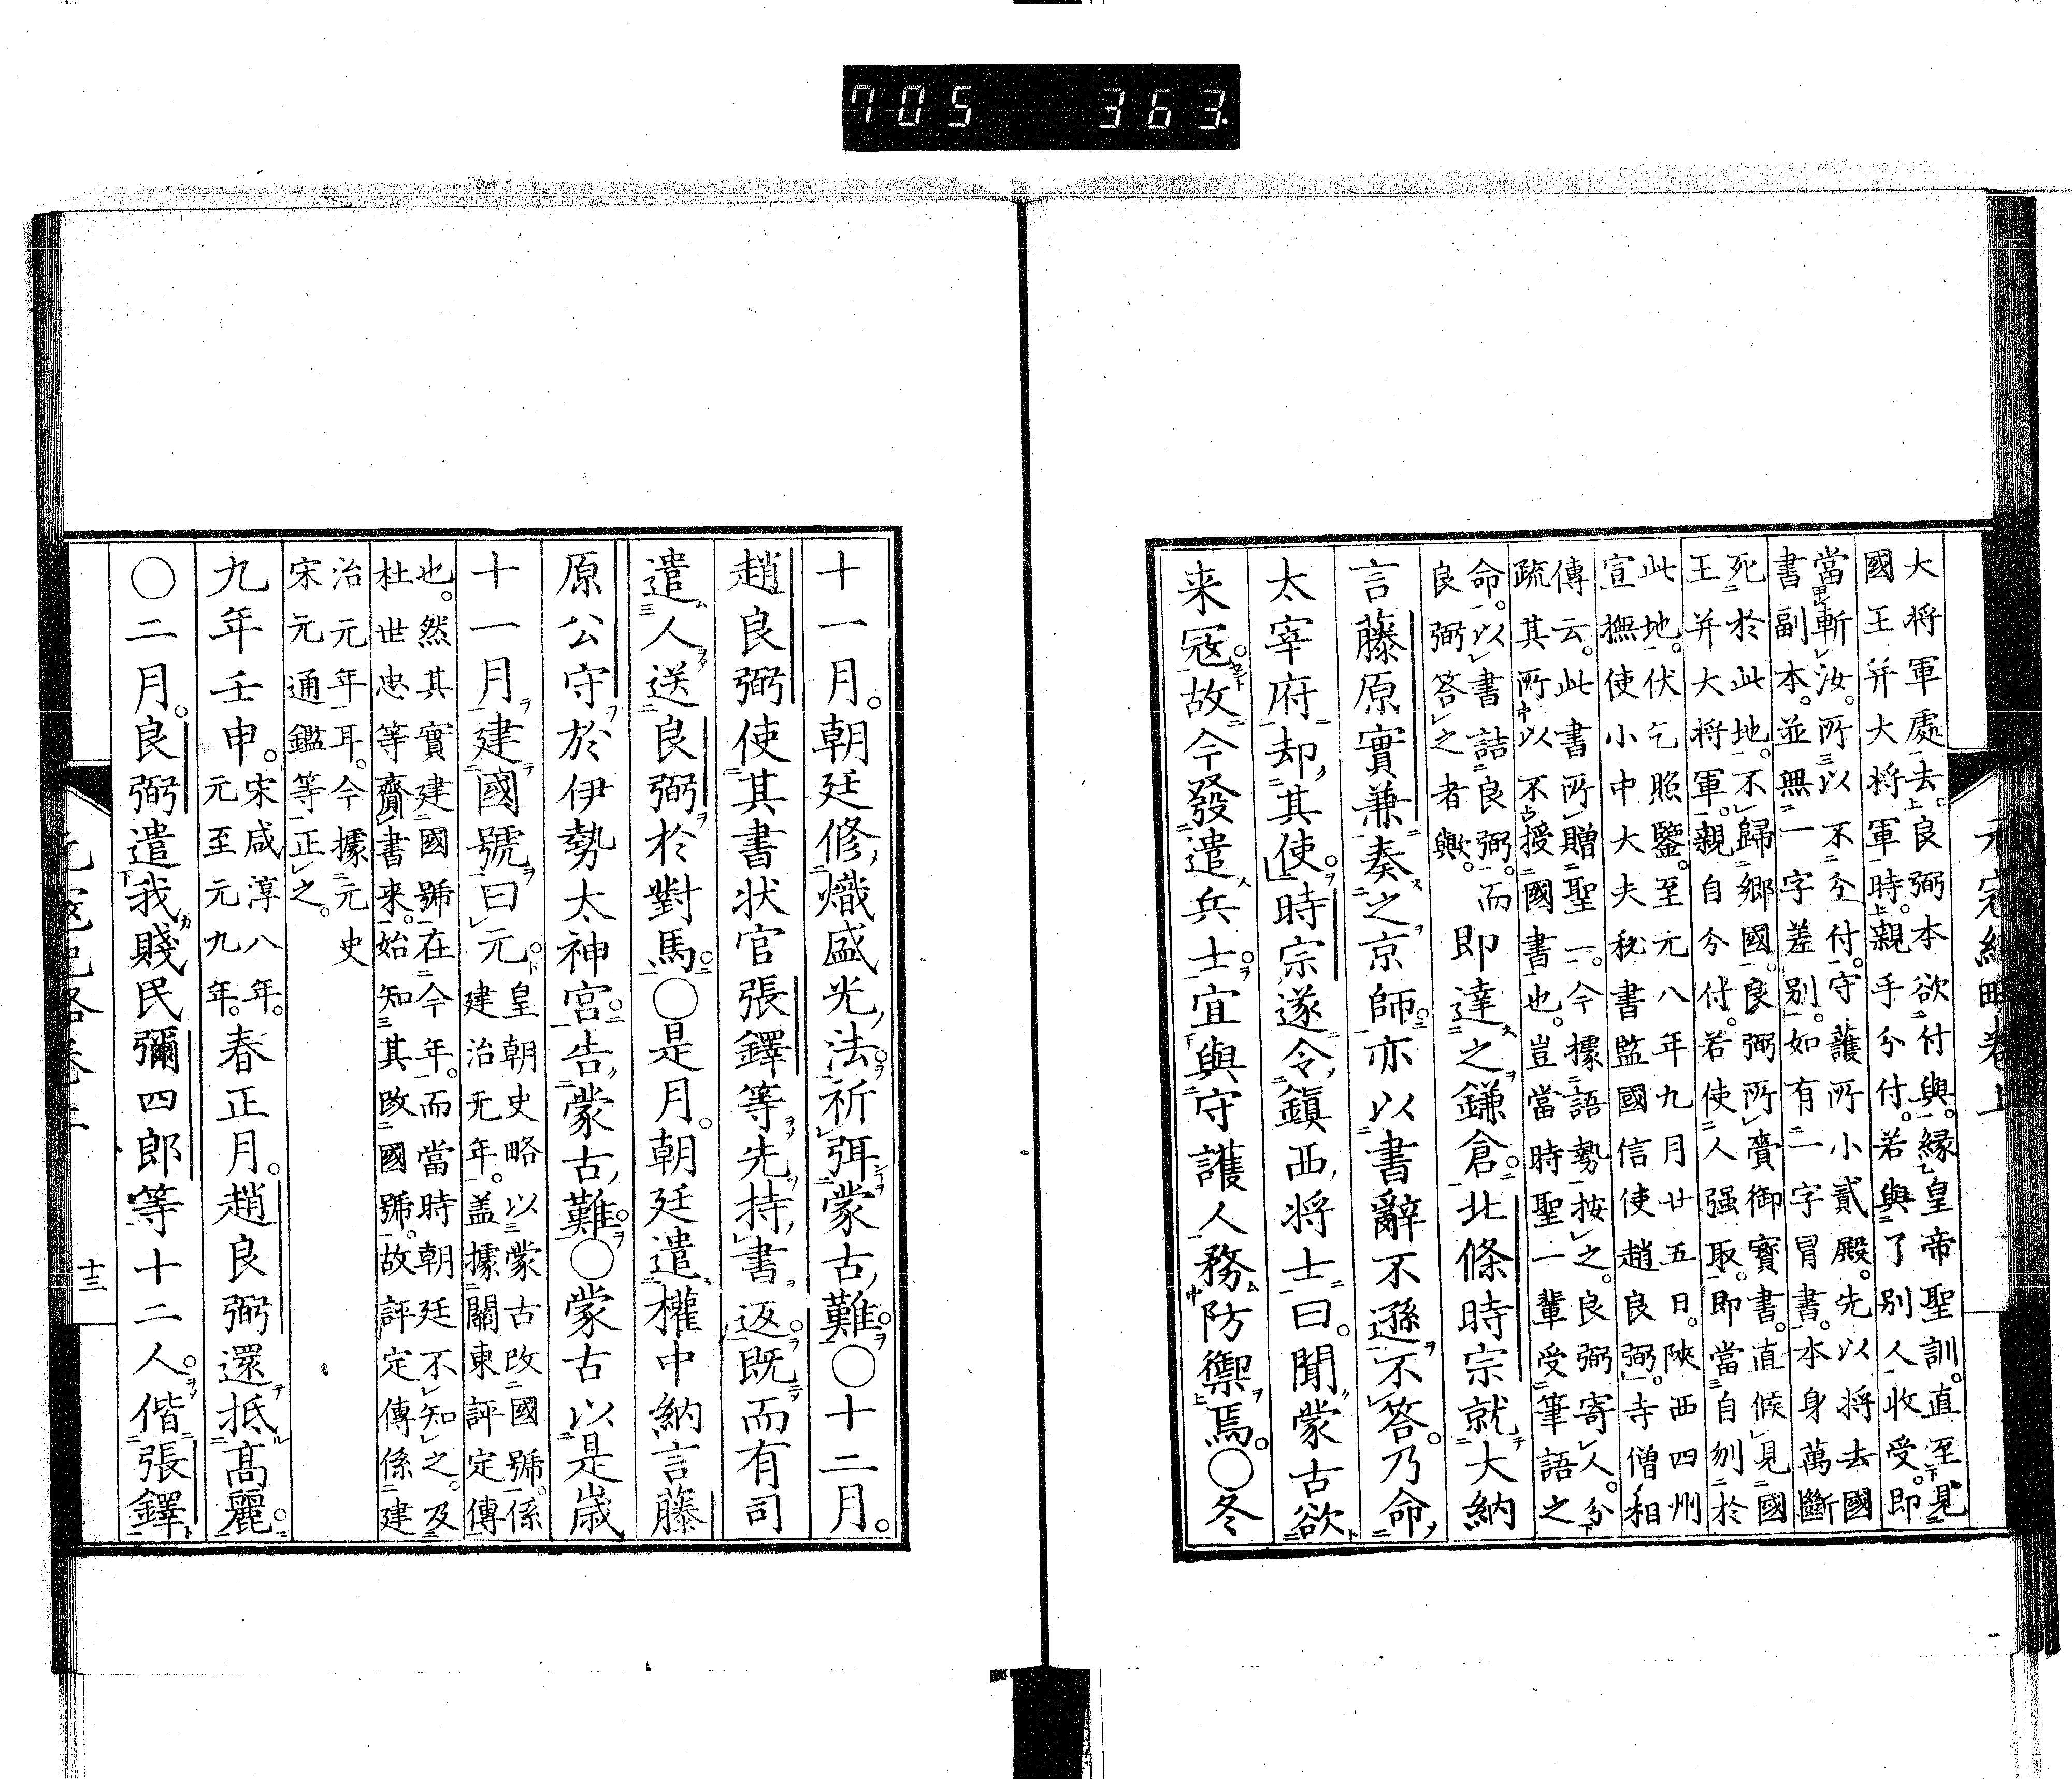 705 363
元冦紀略卷上
大将軍處去。良弼本欲付與。縁皇帝聖訓。直至見
國王并大将軍時。親手分付。若與了別人收受。即
當斬汝。所以不分付。守護所小貳殿。先以将去國
書副本。並無一字差別。如有一字冒書。本身萬斷
死於此地。不歸郷國。良弼所賷御寶書。直候見國
王并大将軍。親自分付。若使人强取。即當自刎於
此地。伏乞照鑒。至元八年九月廿五日。陝西四州
宣撫使小中大夫秘書監國信使趙良弼。寺僧相
傳云。此書所贈聖一。今據語勢按之。良弼寄人。分
疏其所以不授國書也。豈當時聖一輩受筆語之
命。以書詰良弼。而
良弼答之者歟。
即達之鎌倉。北條時宗就大納
言藤原實兼奏之京師。亦以書辭不遜不答。乃命
太宰府却其使。時宗遂令鎮西将士曰。聞蒙古欲
来冦。故今發遣兵士。宜與守護人務防禦焉。○冬
十一月。朝廷修熾盛光法祈弭蒙古難。○十二月。
趙良弼使其書状官張鐸等先持書返。既而有司
遣人送良弼於對馬。○是月。朝廷遣權中納言藤
原公守於伊勢太神宮告蒙古難。○蒙古以是歳
十一月建國號曰元。
皇朝史略以蒙古改國號。係
建治元年。盖據關東評定傳
也。然其實建國號在今年。而當時朝廷不知之。及
杜世忠等齎書来。始知其改國號。故評定傳係建
治元年耳。今據元史
宋元通鑑等正之。
九年壬申。
宋咸淳八年。
元至元九年。
春正月。趙良弼還抵高麗。
○二月。良弼遣我賤民彌四郎等十二人。偕張鐸
十三